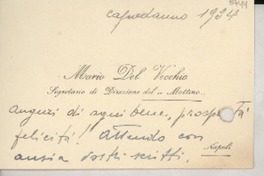 capodanno 1934
Mario Del Vecchio
Segretario di Direzione del « Mattino »
auguri di ogni bene, prosperità
felicità! Attendo con
ansia vostri scritti.
Napoli